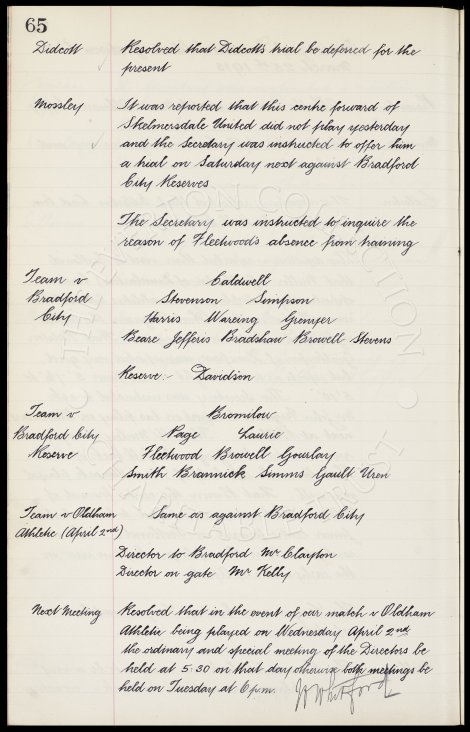 65
Didcott Resolved that Didcott's trial be deferred for the
present
Mossley It was reported that this centre forward of
Skelmersdale United did not play yesterday
and the Secretary was instructed to offer him
a trial on Saturday next against Bradford
City Reserves
The Secretary was instructed to inquire the
reason of Fleetwood's absence from training
Team v Caldwell
Bradford Stevenson Simpson
City Harris Wareing Grenyer
Beare Jefferis Bradshaw Browell Stevens
Reserve:- Davidson
Team v Bromilow
Bradford City Page Laurie
Reserve Fleetwood Browell Gourlay
Smith Brannick Simms Gault Uren
Team v Oldham Same as against Bradford City
Athletic (April 2nd)
Director to Bradford Mr Clayton
Director on gate Mr Kelly
Next Meeting Resolved that in the event of our match v Oldham
Athletic being played on Wednesday April 2nd
the ordinary and special meeting of the Directors be
held at 5.30 on that day otherwise both meetings be
held on Tuesday at 6 p.m. W Whitford